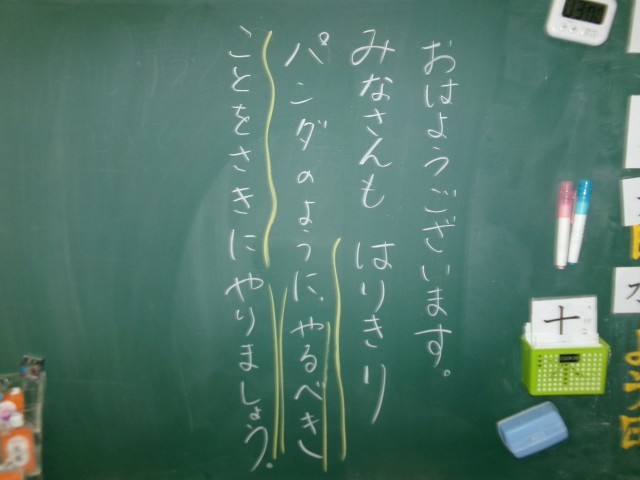 おはようございます。
みなさんも はりきり
パンダのように、やるべき
ことをさきにやりましょう。
土